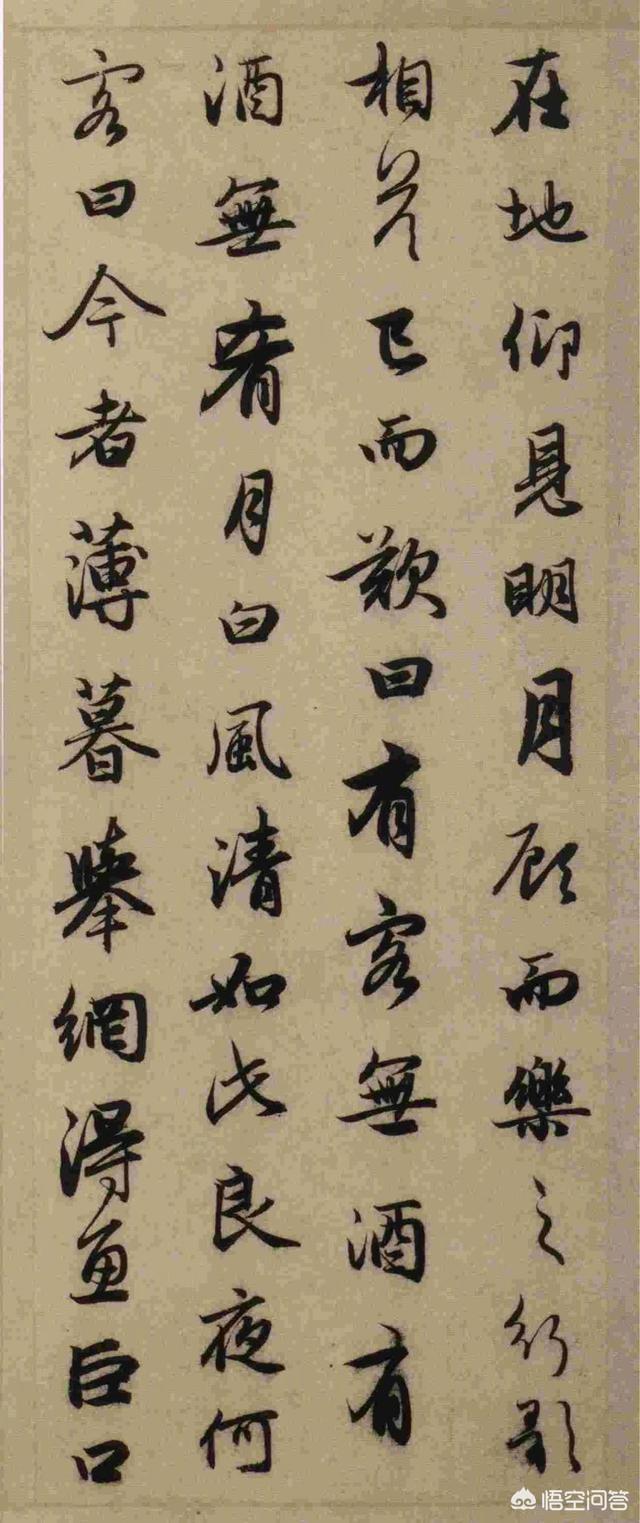 在地仰見明月顧而樂之行歌
相答已而歎曰有客無酒有
酒無肴月白風清如此良夜何
客曰今者薄暮舉網得魚巨口
悟空问答